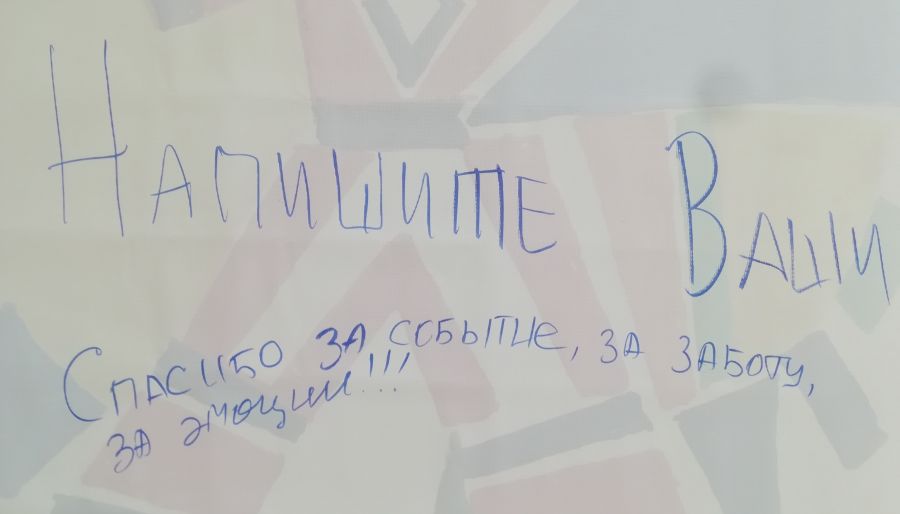 Напишите Ваши
Спасибо за событие, за заботу,
за эмоции!!!